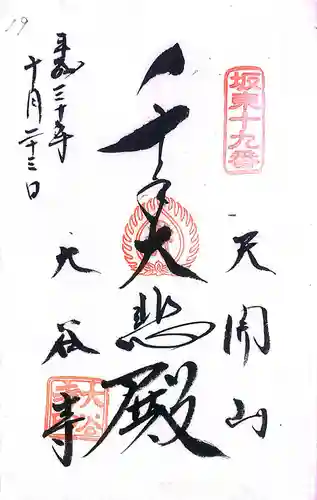 坂東十九番
天開山
千手大悲殿
大谷寺
大谷寺
平成三十年
十月二十三日
19